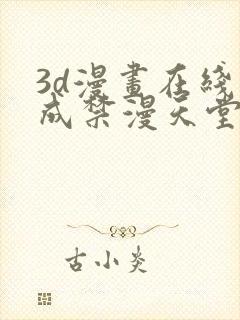 3d漫畫在綫
成禁漫天堂
古小炎